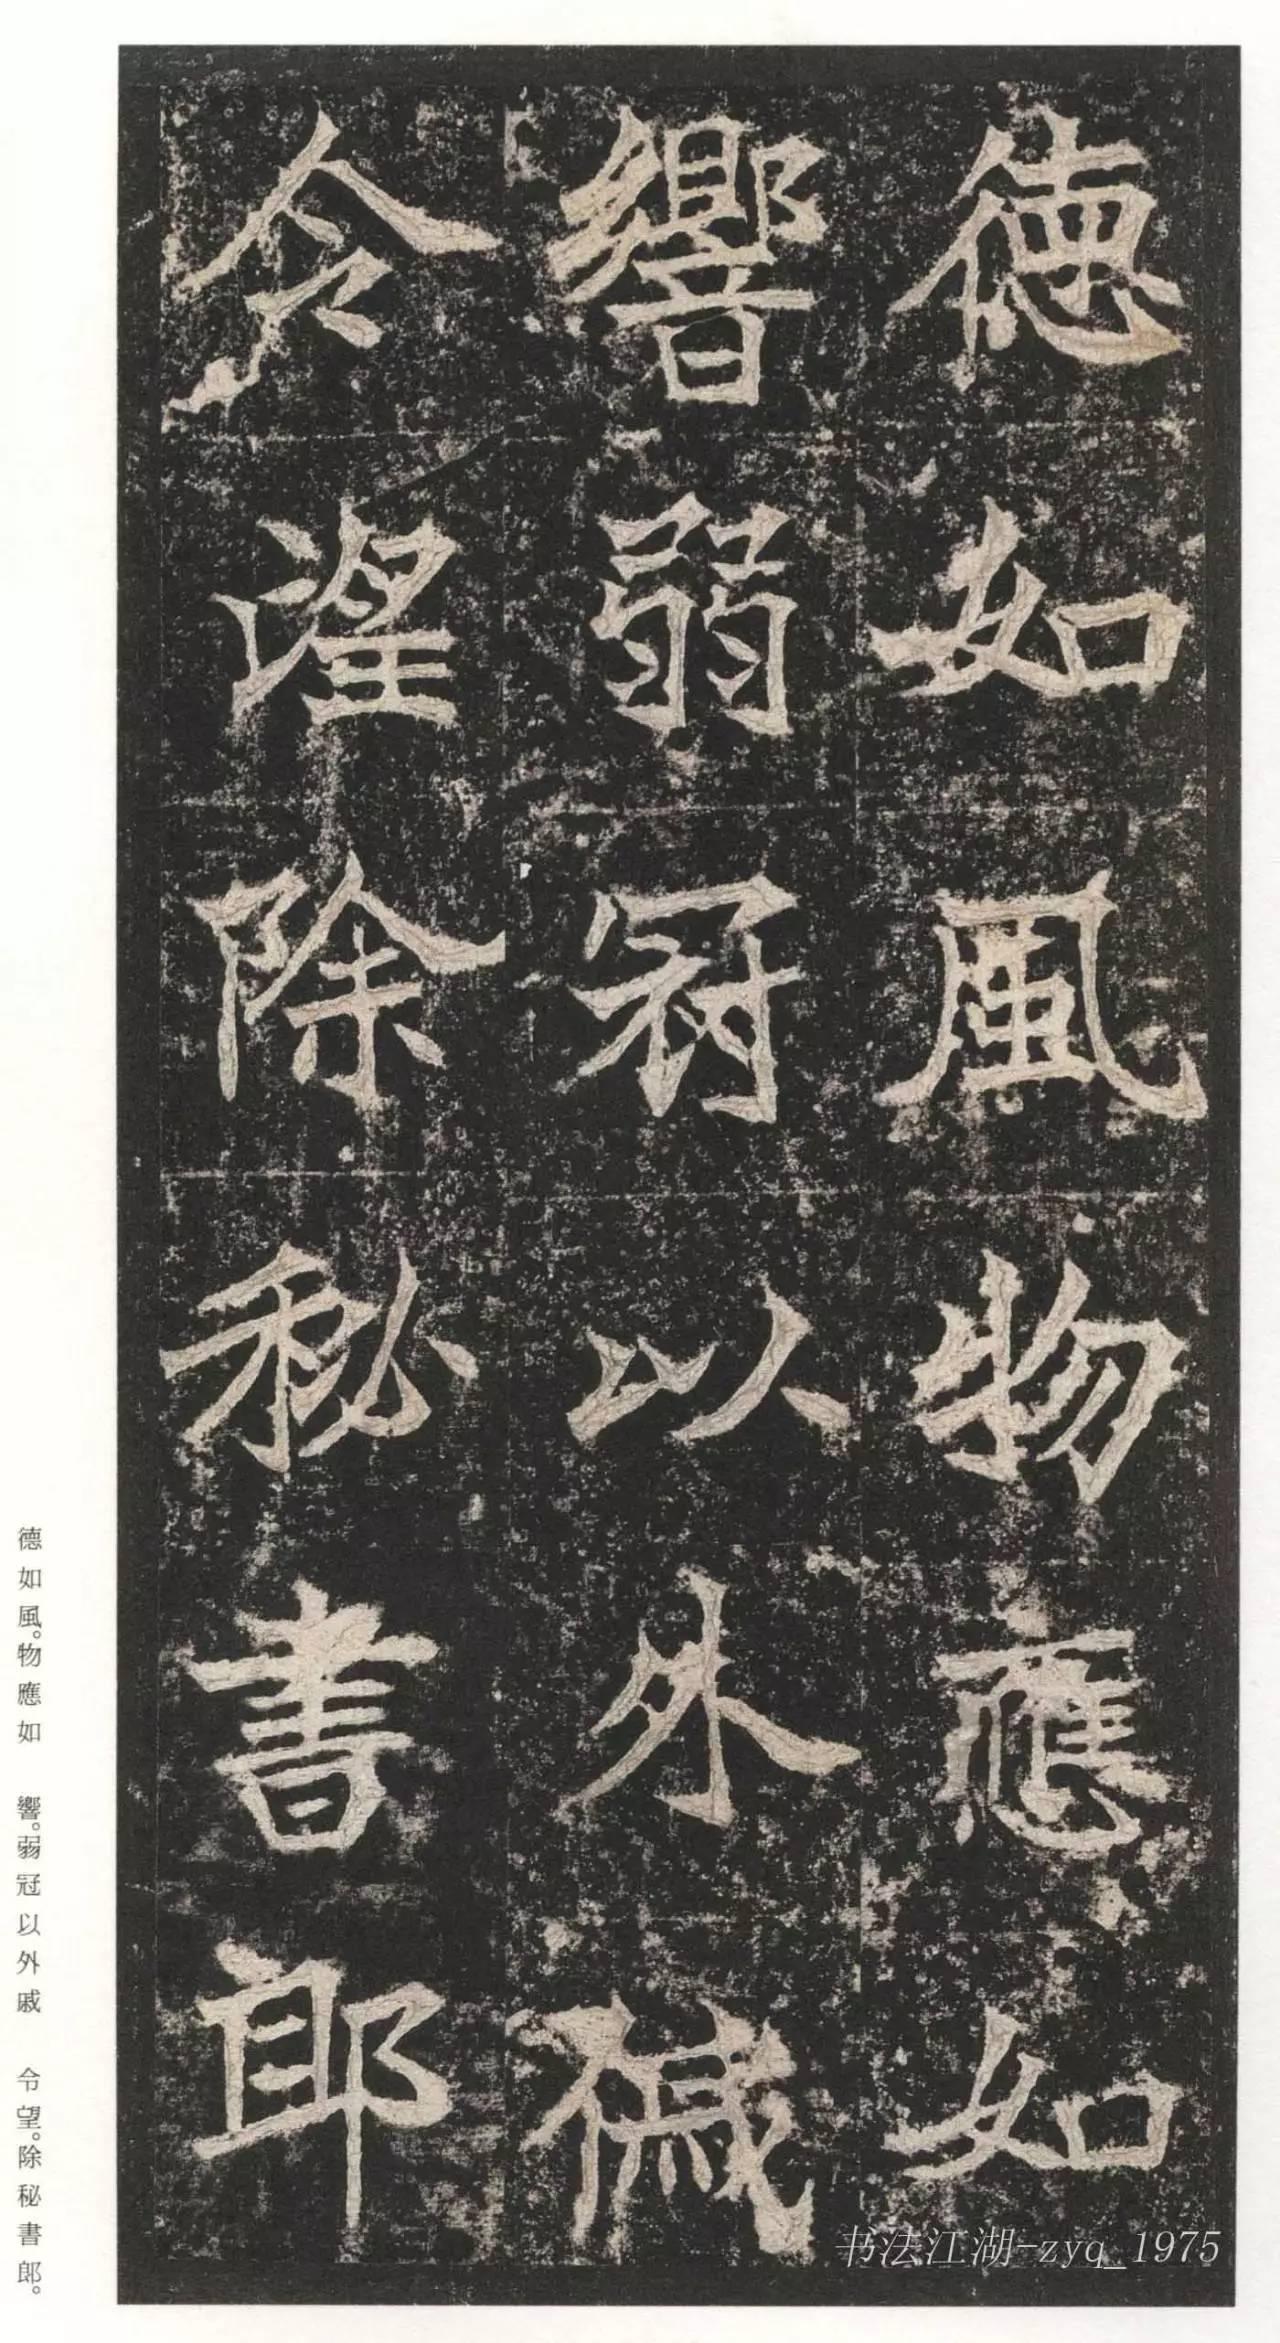 德如風物應如
響弱冠以外戚
令望除秘書郎
德如風。物應如　響。弱冠以外戚　令望。除秘書郎。
书法江湖-zyq_1975